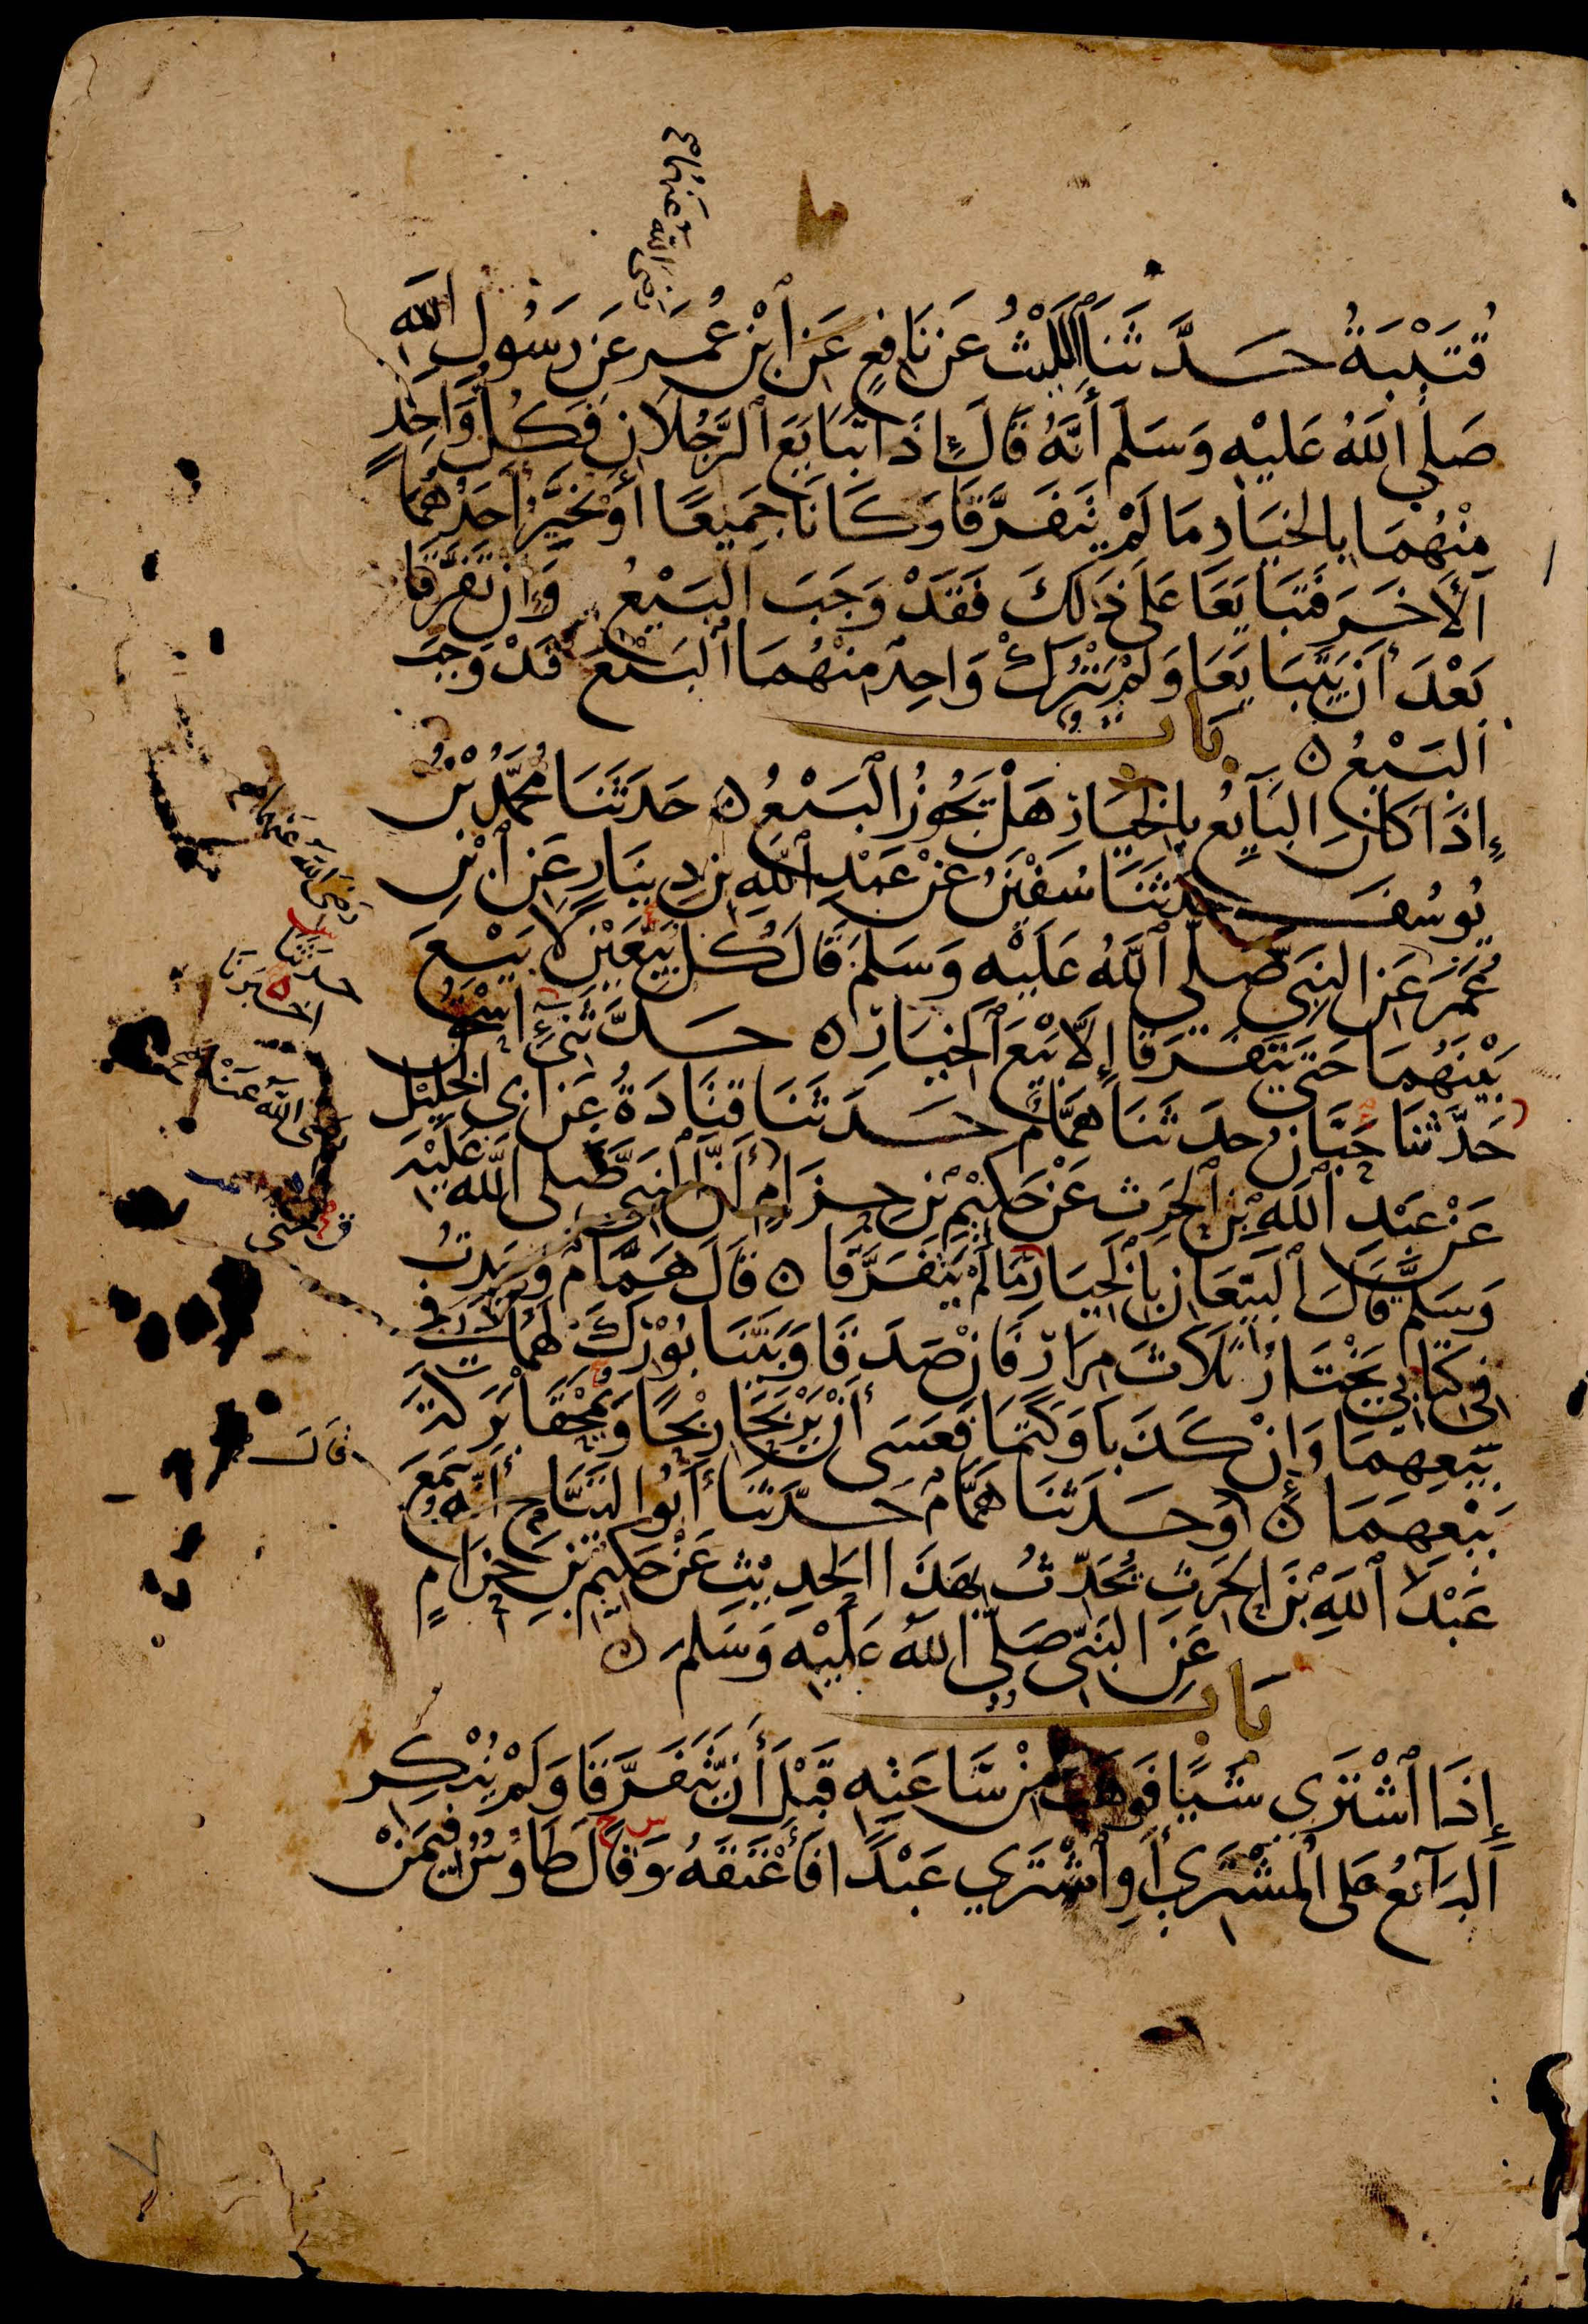 رضى الله عنهما
قُتَيْبَةُ حَدَّثَنَا اللَّيْثُ عَن نَافِعٍ عَنِ ابْنِ عُمَرَ عَن رَسُولِ اللَّهِ
صَلَّى اللَّهُ عَلَيْهِ وَسَلَّمَ أَنَّهُ قَالَ إِذَا تَبَايَعَ الرَّجُلَانِ فَكُلُّ وَاحِدٍ
مِنْهُمَا بِالْخِيَارِ مَا لَمْ يَتَفَرَّقَا وَكَانَا جَمِيعًا أَوْ يُخَيِّرُ أَحَدُهُمَا
الْآخَرَ فَتَبَايَعَا عَلَى ذَلِكَ فَقَدْ وَجَبَ الْبَيْعُ وَإِنْ تَفَرَّقَا
بَعْدَ أَنْ يَتَبَايَعَا وَلَمْ يَتْرُكْ وَاحِدٌ مِنْهُمَا الْبَيْعَ فَقَدْ وَجَبَ
الْبَيْعُ ۝ بَاب
إِذَا كَانَ الْبَايِعُ بِالْخِيَارِ هَلْ يَجُوزُ الْبَيْعُ ۝ حَدَّثَنَا مُحَمَّدُ بْنُ
يُوسُفَ حَدَّثَنَا سُفْيَنُ عَنْ عَبْدِ اللَّهِ بْنِ دِينَارٍ عَنِ ابْنِ
عُمَرَ عَنِ النَّبِيِّ صَلَّى اللَّهُ عَلَيْهِ وَسَلَّمَ قَالَ كُلُّ بَيِّعَيْنِ لَا بَيْعَ
بَيْنَهُمَا حَتَّى يَتَفَرَّقَا إِلَّا بَيْعَ الْخِيَارِ ۝ حَدَّثَنِي إِسْحَقُ
حَدَّثَنَا حَبَّانُ حَدَّثَنَا هَمَّامٌ حَدَّثَنَا قَتَادَةُ عَنْ أَبِي الْخَلِيلِ
عَنْ عَبْدِ اللَّهِ بْنِ الْحَرِثِ عَنْ حَكِيمِ بْنِ حِزَامٍ أَنَّ النَّبِيَّ صَلَّى اللَّهُ عَلَيْهِ
وَسَلَّمَ قَالَ الْبَيِّعَانِ بِالْخِيَارِ مَا لَمْ يَتَفَرَّقَا ۝ قَالَ هَمَّامٌ وَجَدْتُ
فِي كِتَابِي يَخْتَارُ ثَلَاثَ مِرَارٍ فَإِنْ صَدَقَا وَبَيَّنَا بُورِكَ لَهُمَا فِي
بَيْعِهِمَا وَإِنْ كَذَبَا وَكَتَمَا فَعَسَى أَنْ يَرْبَحَا رِبْحًا وَيُمْحَقَا بَرَكَةَ
بَيْعِهِمَا ۝ وَحَدَّثَنَا هَمَّامٌ حَدَّثَنَا أَبُو التَّيَّاحِ أَنَّهُ سَمِعَ
عَبْدَ اللَّهِ بْنَ الْحَرِثِ يُحَدِّثُ بِهَذَا الْحَدِيثِ عَنْ حَكِيمِ بْنِ حِزَامٍ
عَنِ النَّبِيِّ صَلَّى اللَّهُ عَلَيْهِ وَسَلَّمَ ۝
بَاب
إِذَا اشْتَرَى شَيْئًا فَوَهَبَ مِنْ سَاعَتِهِ قَبْلَ أَنْ يَتَفَرَّقَا وَلَمْ يُنْكِرِ
الْبَائِعُ عَلَى الْمُشْتَرِي أَوِ اشْتَرَى عَبْدًا فَأَعْتَقَهُ وَقَالَ طَاوُسٌ فِيمَنْ
رضى الله عنهما
حدثنا
اخبرنا
رضى الله عنه
قال